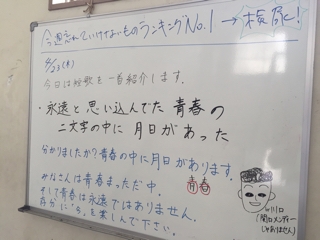 今週忘れていけないものランキングNo.1 → 検尿!
8/23(木)
今日は短歌を一首紹介します。
・永遠と思い込んでた青春の
二文字の中に月日があった
分かりましたか?青春の中に月日があります。
みなさんは青春まっただ中。
青春
そして青春は永遠ではありません。
存分に"今"を楽しんで下さい。
川口
(関口メンディー
じゃありません)